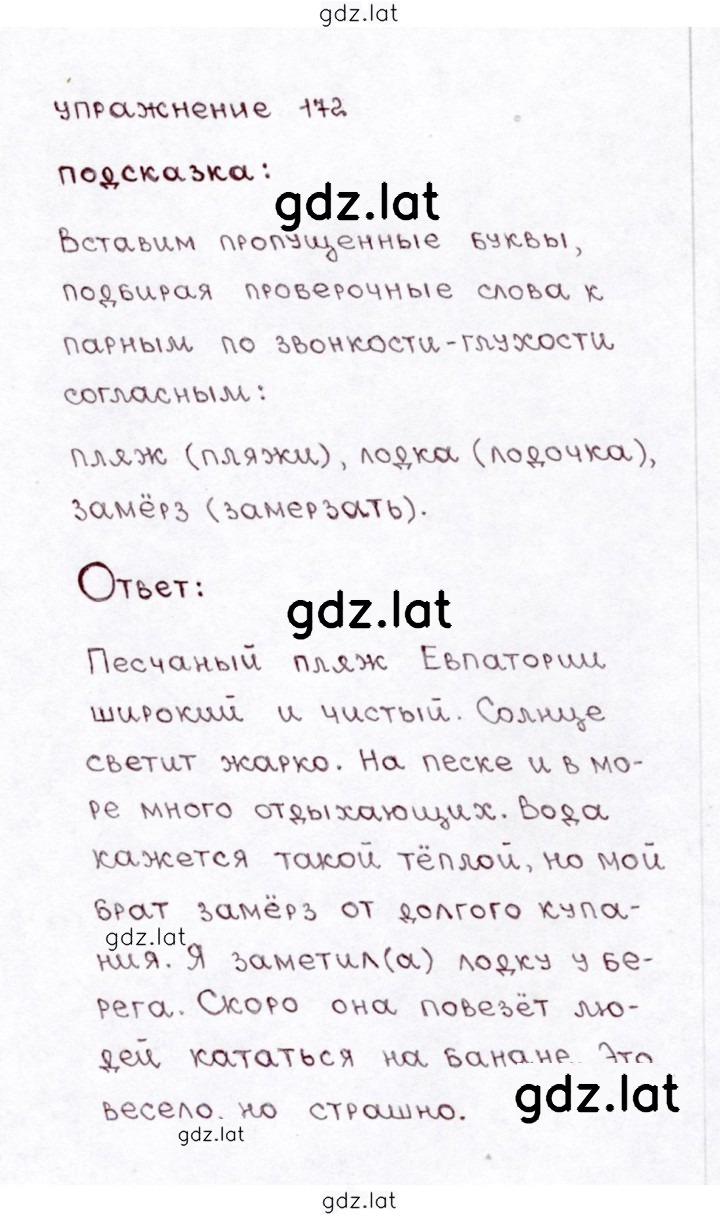 gdz.lat
упражнение 172
подсказка:
gdz.lat
Вставим пропущенные буквы,
подбирая проверочные слова к
парным по звонкости-глухости
согласным:
пляж (пляжи), лодка (лодочка),
замёрз (замерзать).
Ответ:
gdz.lat
Песчаный пляж Евпатории
широкий и чистый. Солнце
светит жарко. На песке и в мо-
ре много отдыхающих. Вода
кажется такой тёплой, но мой
брат замёрз от долгого купа-
gdz.lat
ния. Я заметил(а) лодку у бе-
рега. Скоро она повезёт лю-
дей кататься на банане. Это
gdz.lat
весело, но страшно.
gdz.lat
gdz.lat